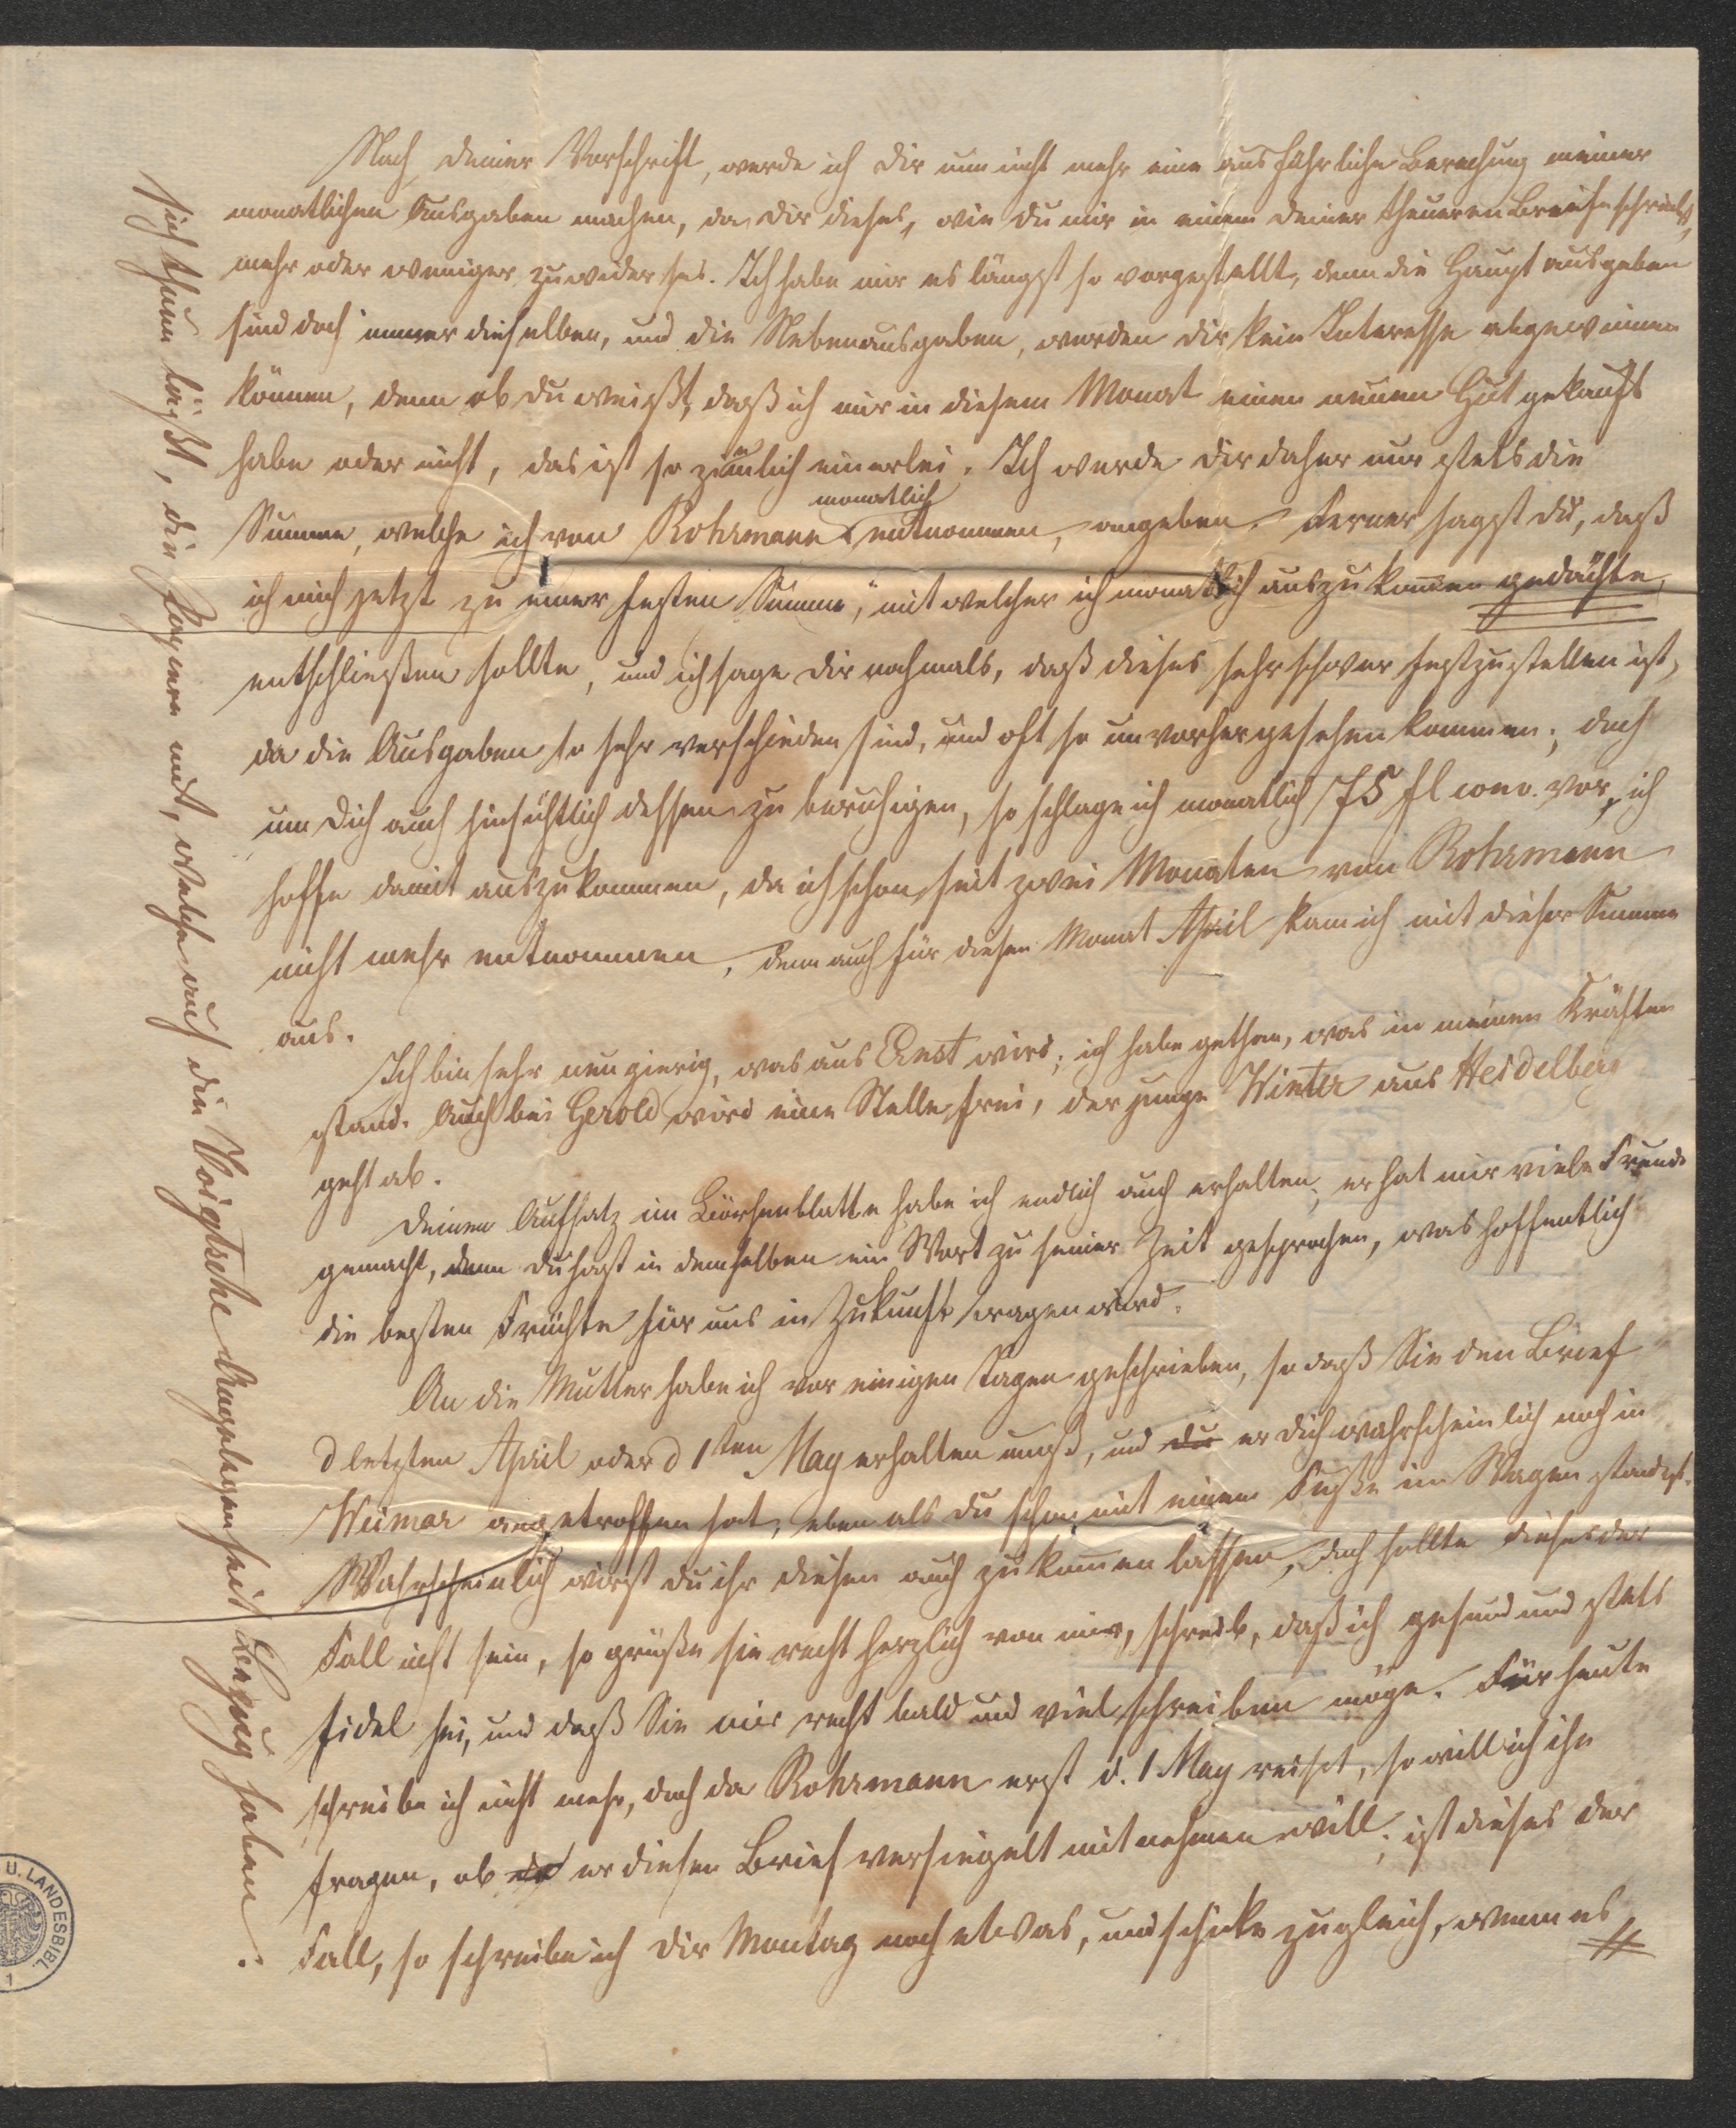 Nach deiner Vorschrift, werde ich dir nun nicht mehr eine ausführliche Berechung meiner
monatlichen Ausgaben machen, da dir dieses, wie du mir in einem deiner theueren Briefe schriebst,
mehr oder weniger zuwider sei. Ich habe mir es längst so vorgestellt, denn die Hauptausgaben
sind doch immer dieselben, und die Nebenausgaben, werden dir kein Interesse abgewinnen
können, denn ob du weißt, daß ich mir in diesem Monat einen neuen Hut gekauft
habe oder nicht, das ist so ziemlich einerlei. Ich werde dir daher nur stets die
monatlich
Summe, welche ich von Rohrmann entnommen, angeben. Ferner sagst du, daß
ich mich jetzt zu einer festen Summe, mit welcher ich monatlich auszukommen gedächte,
entschließen sollte, und ich sage dir nochmals, daß dieses sehr schwer festzustellen ist,
da die Ausgaben so sehr verschieden sind, und oft so unvorhergesehen kommen; doch
um dich auch hinsichtlich dessen zu beruhigen, so schlage ich monatlich 75 fl conv. vor, ich
hoffe damit auszukommen, da ich schon seit zwei Monaten von Rohrmann
nicht mehr entnommen, denn auch für diesen Monat April kam ich mit dieser Summe
aus.
Ich bin sehr neugierig, was aus Ernst wird; ich habe gethan, was in meinen Kräften
stand. Auch bei Gerold wird eine Stelle frei, der junge Winter aus Heidelberg
geht ab.
Deinen Aufsatz im Börsenblatte habe ich endlich auch erhalten; er hat mir viele Freude
gemacht, denn du hast in demselben ein Wort zu seiner Zeit gesprochen, was hoffentlich
die besten Früchte für uns in Zukunft tragen wird.
An die Mutter habe ich vor einigen Tagen geschrieben, so daß Sie den Brief
d letzten April oder d 1ten May erhalten muß, und du er dich wahrscheinlich noch in
Weimar angetroffen hat, eben als du schon mit einem Fuße im Wagen standest.
Wahrscheinlich wirst du ihr diesen auch zukommen lassen, doch sollte dieses der
Fall nicht sein, so grüße sie recht herzlich von mir, schreib, daß ich gesund und stets
fidel sei, und daß Sie mir recht bald und viel schreiben möge. Für heute
schreibe ich nicht mehr, doch da Rohrmann erst d. 1 May reist, so will ich ihn
fragen, ob er diesen Brief versiegelt mitnehmen will; ist dieses der
Fall, so schreibe ich dir Montag noch etwas, und schicke zugleich, wenn es
sich thun läßt, die Papiere mit, welche auf die Voigtsche Angelegenheit Bezug haben.
U. LANDESBIBL.